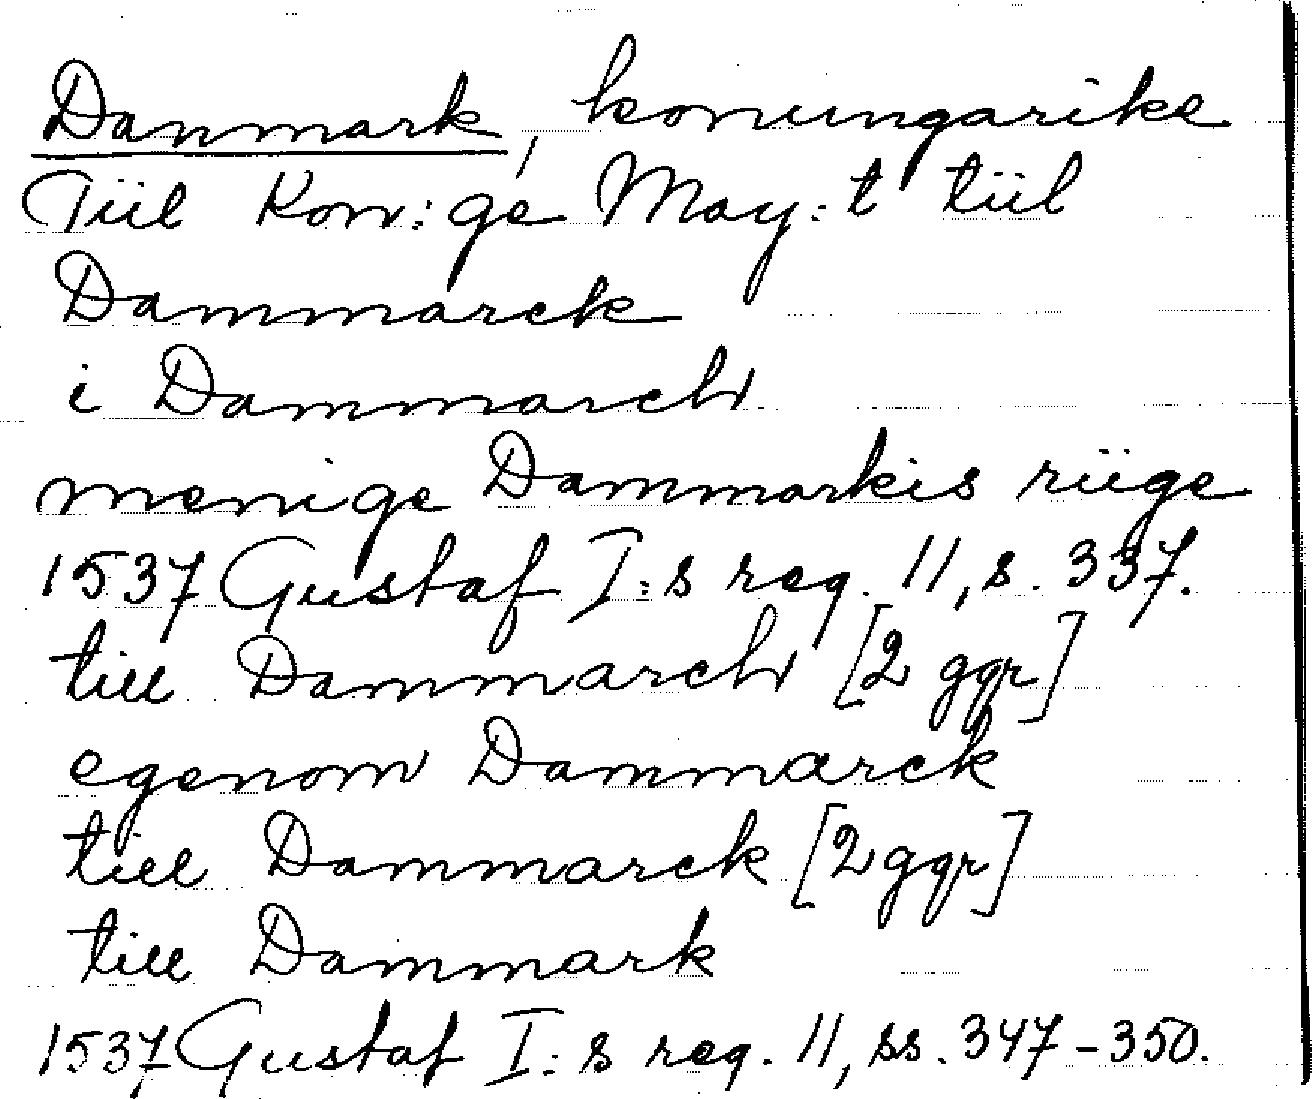 Danmark, konungarike
Tiil Kon:ge May:t tiil
Dammarck
i Dammarch
menige Dammarkis riige
1537 Gustaf I:s reg. 11, s. 337.
till Dammarch [2 ggr]
egenom Dammarck
till Dammarck [2 ggr]
till Dammark
1537 Gustaf I:s reg. 11, ss. 347-350.